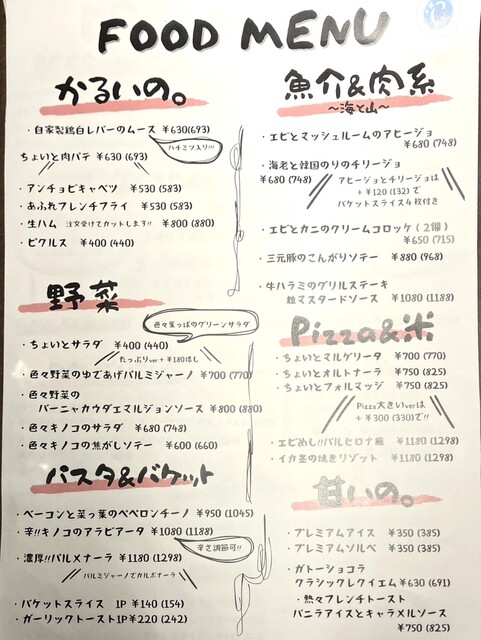 FOOD MENU
かるいの。
・自家製鶏白レバーのムース ¥630(693)
ハチミツ入り!!!
ちょいと肉パテ ¥630 (693)
・アンチョビキャベツ ¥530 (583)
・あふれフレンチフライ ¥530 (583)
・生ハム 注文受けてカットします!! ¥800 (880)
・ピクルス ¥400 (440)
野菜
色々葉っぱのグリーンサラダ
・ちょいとサラダ ¥400 (440)
たっぷりver + ¥180増し
・色々野菜のゆであげパルミジャーノ ¥700 (770)
・色々野菜の
バーニャカウダエマルジョンソース ¥800 (880)
・色々キノコのサラダ ¥680 (748)
・色々キノコの焦がしソテー ¥600 (660)
パスタ&バケット
・ベーコンと菜っ葉のペペロンチーノ ¥950 (1045)
・辛!!キノコのアラビアータ ¥1080 (1188)
辛さ調節可!!
・濃厚!!パルメナーラ ¥1180 (1298)
パルミジャーノでカルボナーラ
・バケットスライス 1P ¥140 (154)
・ガーリックトースト1P ¥220 (242)
魚介&肉系
~海と山~
・エビとマッシュルームのアヒージョ
¥680 (748)
・海老と韓国のりのチリージョ
¥680 (748)
アヒージョとチリージョは
+ ¥120 (132) で
バケットスライス4枚付き
・エビとカニのクリームコロッケ ( 2個 )
¥650 (715)
・三元豚のこんがりソテー ¥880 (968)
・牛ハラミのグリルステーキ
粒マスタードソース ¥1080 (1188)
Pizza&米
・ちょいとマルゲリータ ¥700 (770)
・ちょいとオルトナーラ ¥750 (825)
・ちょいとフォルマッジ ¥750 (825)
Pizza大きいverは
+ ¥300 (330)で!!
・エビめし!!バルセロナ風 ¥1180 (1298)
・イカ墨の焼きリゾット ¥1180 (1298)
甘いの。
・プレミアムアイス ¥350 (385)
・プレミアムソルベ ¥350 (385)
・ガトーショコラ
クラシックレクイエム ¥630 (691)
・熱々フレンチトースト
バニラアイスとキャラメルソース
¥750 (825)